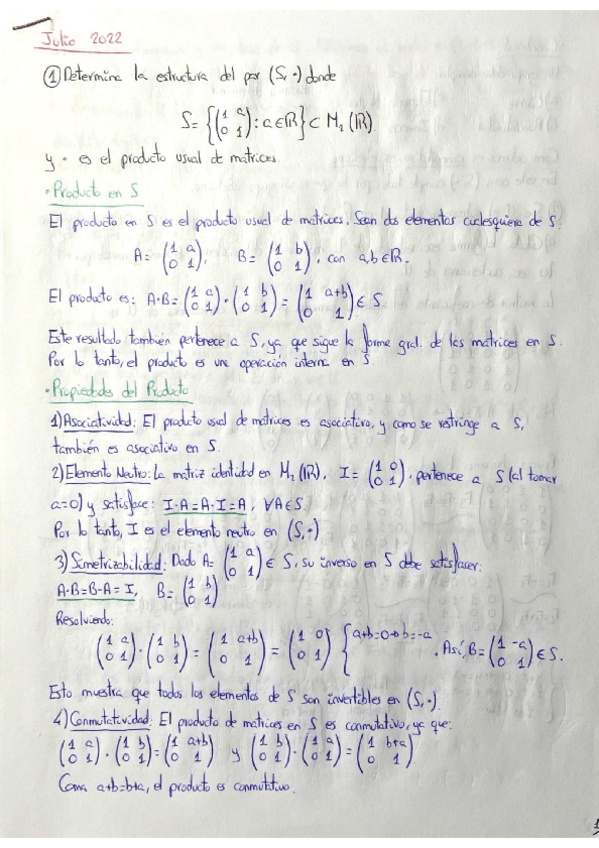 Julio 2022
① Determina la estructura del par (S, ·) donde
S = {(1 a; 0 1) : a ∈ ℝ} ⊂ M₂(ℝ).
y · es el producto usual de matrices.
· Producto en S
El producto en S es el producto usual de matrices. Sean dos elementos cualesquiera de S:
A = (1 a; 0 1), B = (1 b; 0 1), con a,b ∈ ℝ.
El producto es: A·B = (1 a; 0 1) · (1 b; 0 1) = (1 a+b; 0 1) ∈ S
Este resultado también pertenece a S, ya que sigue la forma gral. de las matrices en S.
Por lo tanto, el producto es una operación interna en S.
· Propiedades del Producto
1) Asociatividad: El producto usual de matrices es asociativo, y como se restringe a S,
también es asociativo en S.
2) Elemento Neutro: La matriz identidad en M₂(ℝ), I = (1 0; 0 1), pertenece a S (al tomar
a=0) y satisface: I·A=A·I=A, ∀A∈S.
Por lo tanto, I es el elemento neutro en (S,·)
3) Simetrizabilidad: Dado A = (1 a; 0 1) ∈ S, su inverso en S debe satisfacer:
A·B=B·A=I, B = (1 b; 0 1)
Resolviendo:
(1 a; 0 1) · (1 b; 0 1) = (1 a+b; 0 1) = (1 0; 0 1) { a+b=0→b=-a . Así, B = (1 -a; 0 1) ∈ S.
Esto muestra que todos los elementos de S son invertibles en (S,·)
4) Conmutatividad: El producto de matrices en S es conmutativo, ya que:
(1 a; 0 1) · (1 b; 0 1) = (1 a+b; 0 1) y (1 b; 0 1) · (1 a; 0 1) = (1 b+a; 0 1)
Como a+b=b+a, el producto es conmutativo.
1